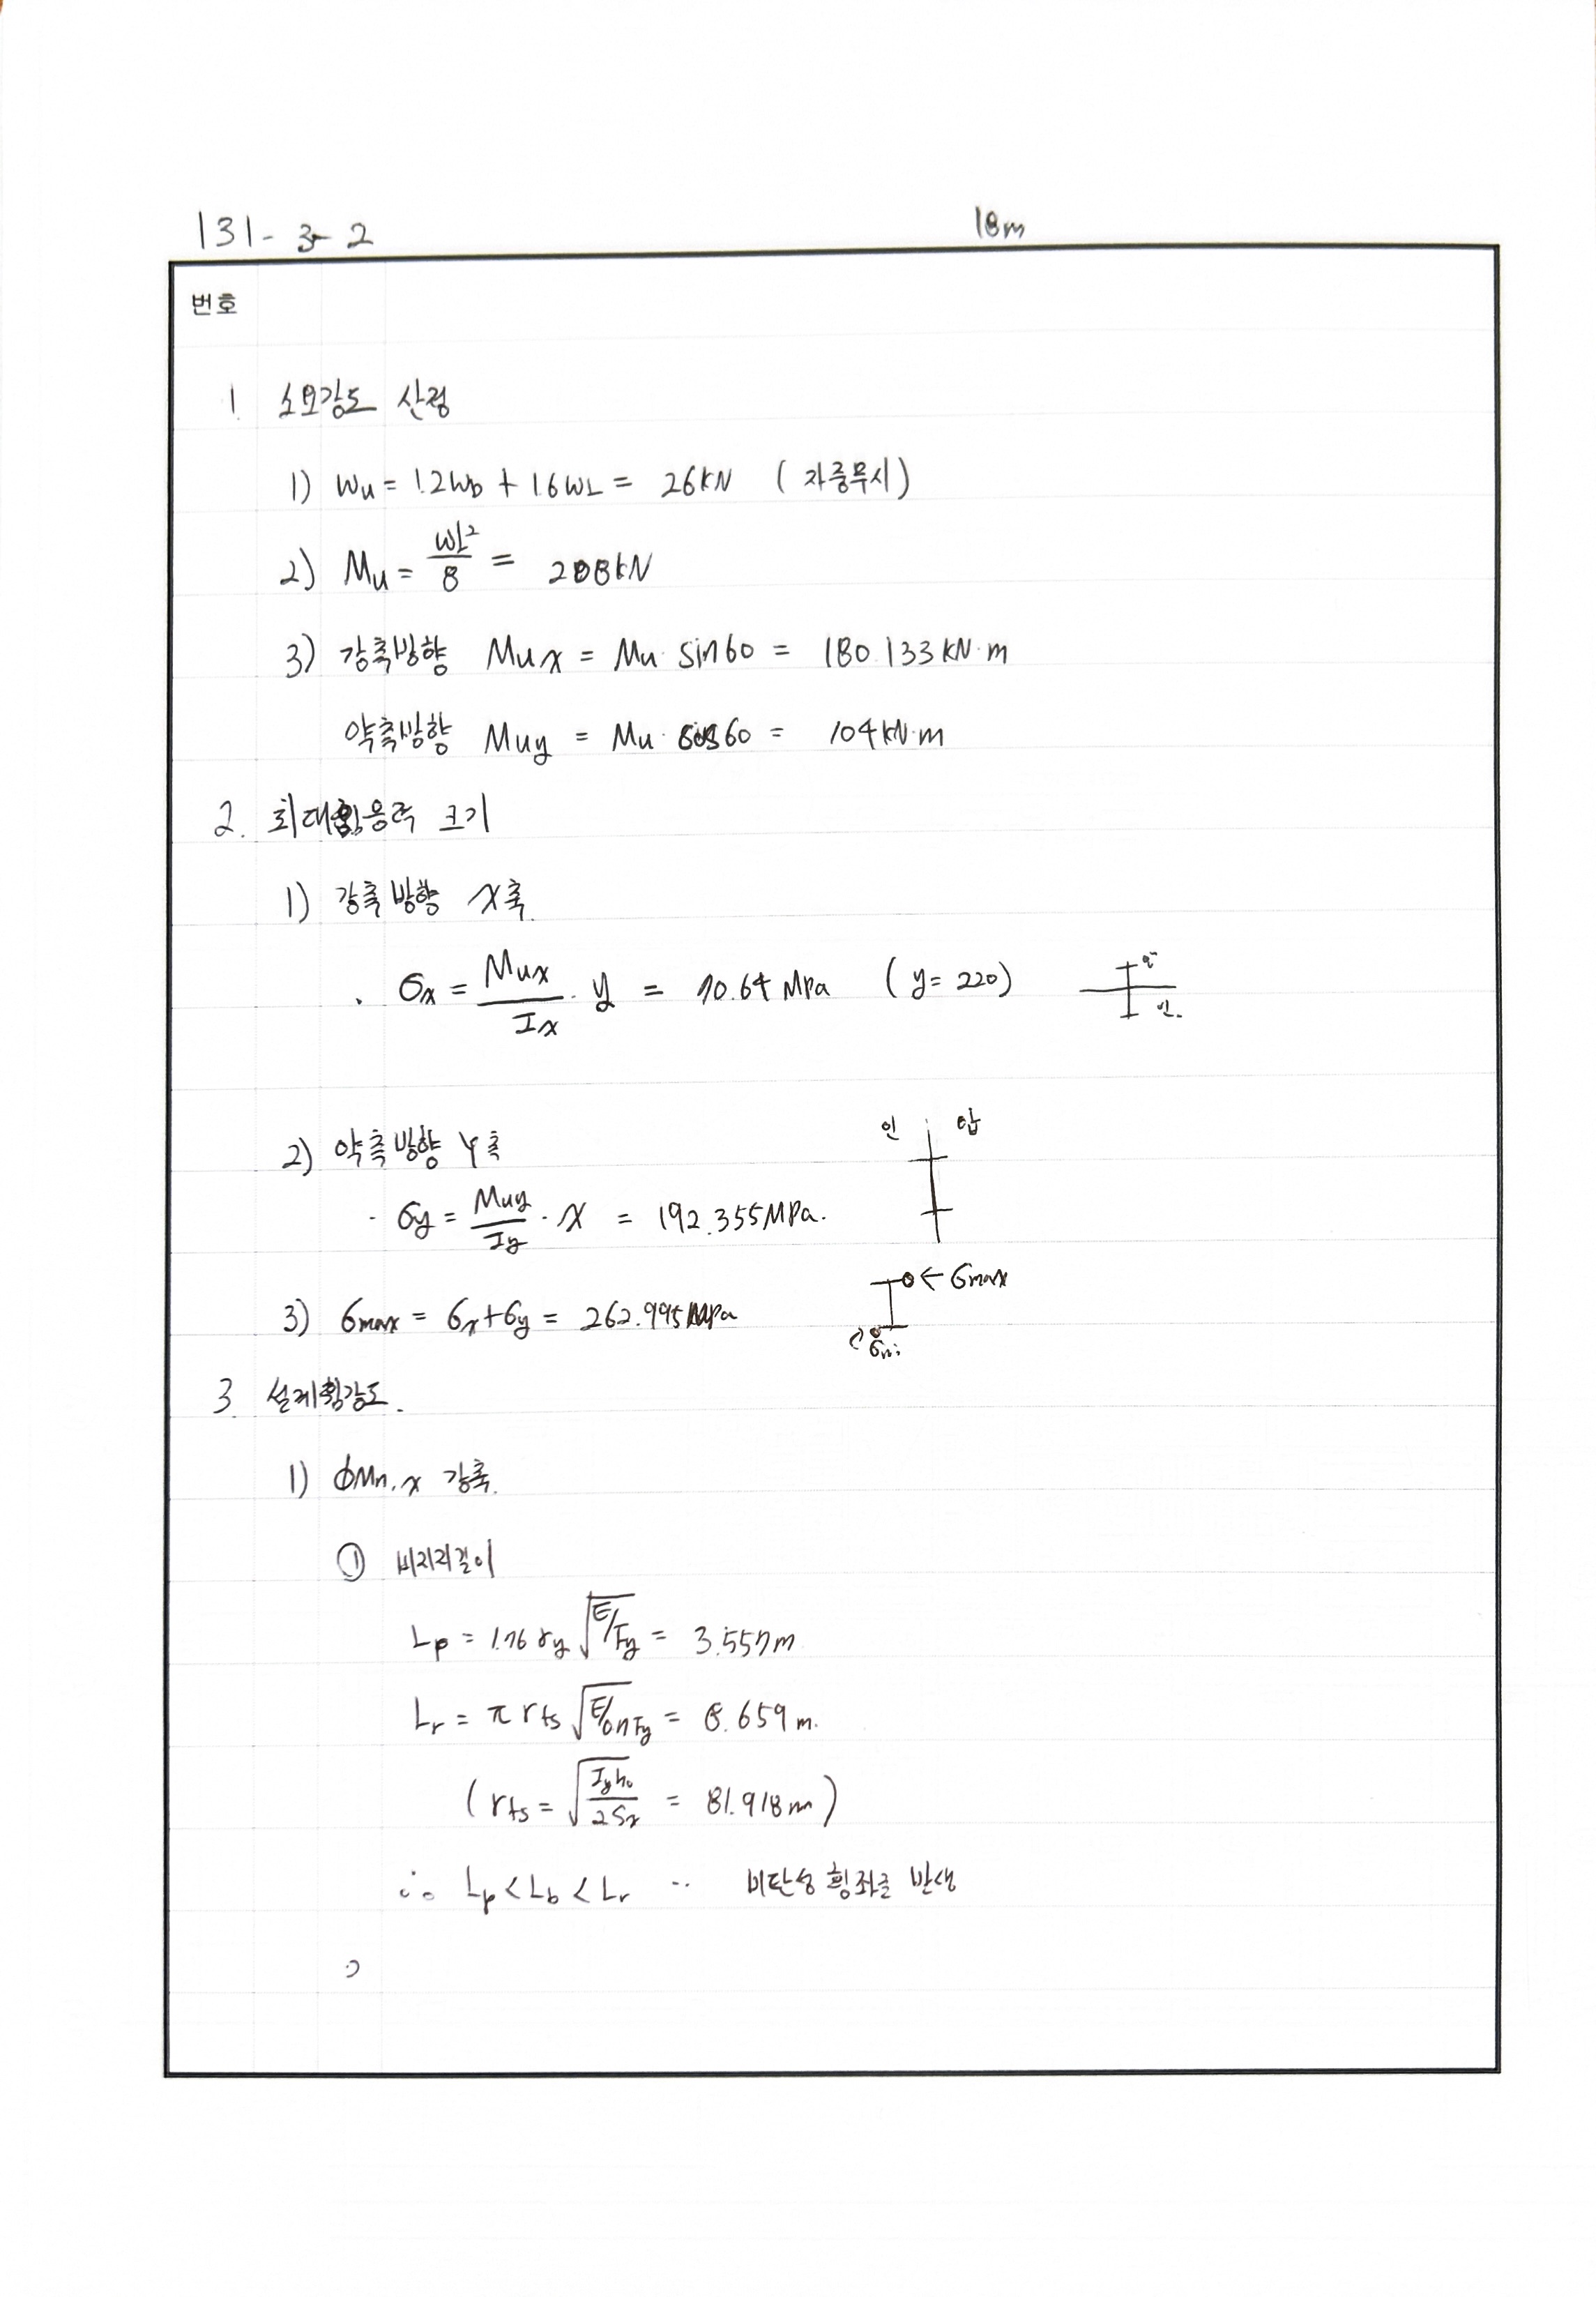 131-3-2
18m
번호
1. 소요강도 산정
1) Wu = 1.2WD + 1.6WL = 26kN (자중무시)
2) Mu = WL²/8 = 208kN
3) 강축방향 Mux = Mu · sin60 = 180.133kN·m
약축방향 Muy = Mu · cos60 = 104kN·m
2. 최대휨응력 크기
1) 강축방향 X축.
· σx = Mux/Ix · y = 70.64 MPa (y = 220)
압
인.
2) 약축방향 Y축
인 압
· σy = Muy/Iy · x = 192.355MPa.
3) σmax = σx+σy = 262.995MPa
← σmax
3. 설계휨강도.
1) ϕMn.x 강축.
① 비지지길이
Lp = 1.76 ry √E/Fy = 3.557m
Lr = π rts √E/0.7Fy = 8.659m.
(rts = √Iyh₀/2Sx = 81.918m)
∴ Lp < Lb < Lr ·· 비탄성 횡좌굴 발생